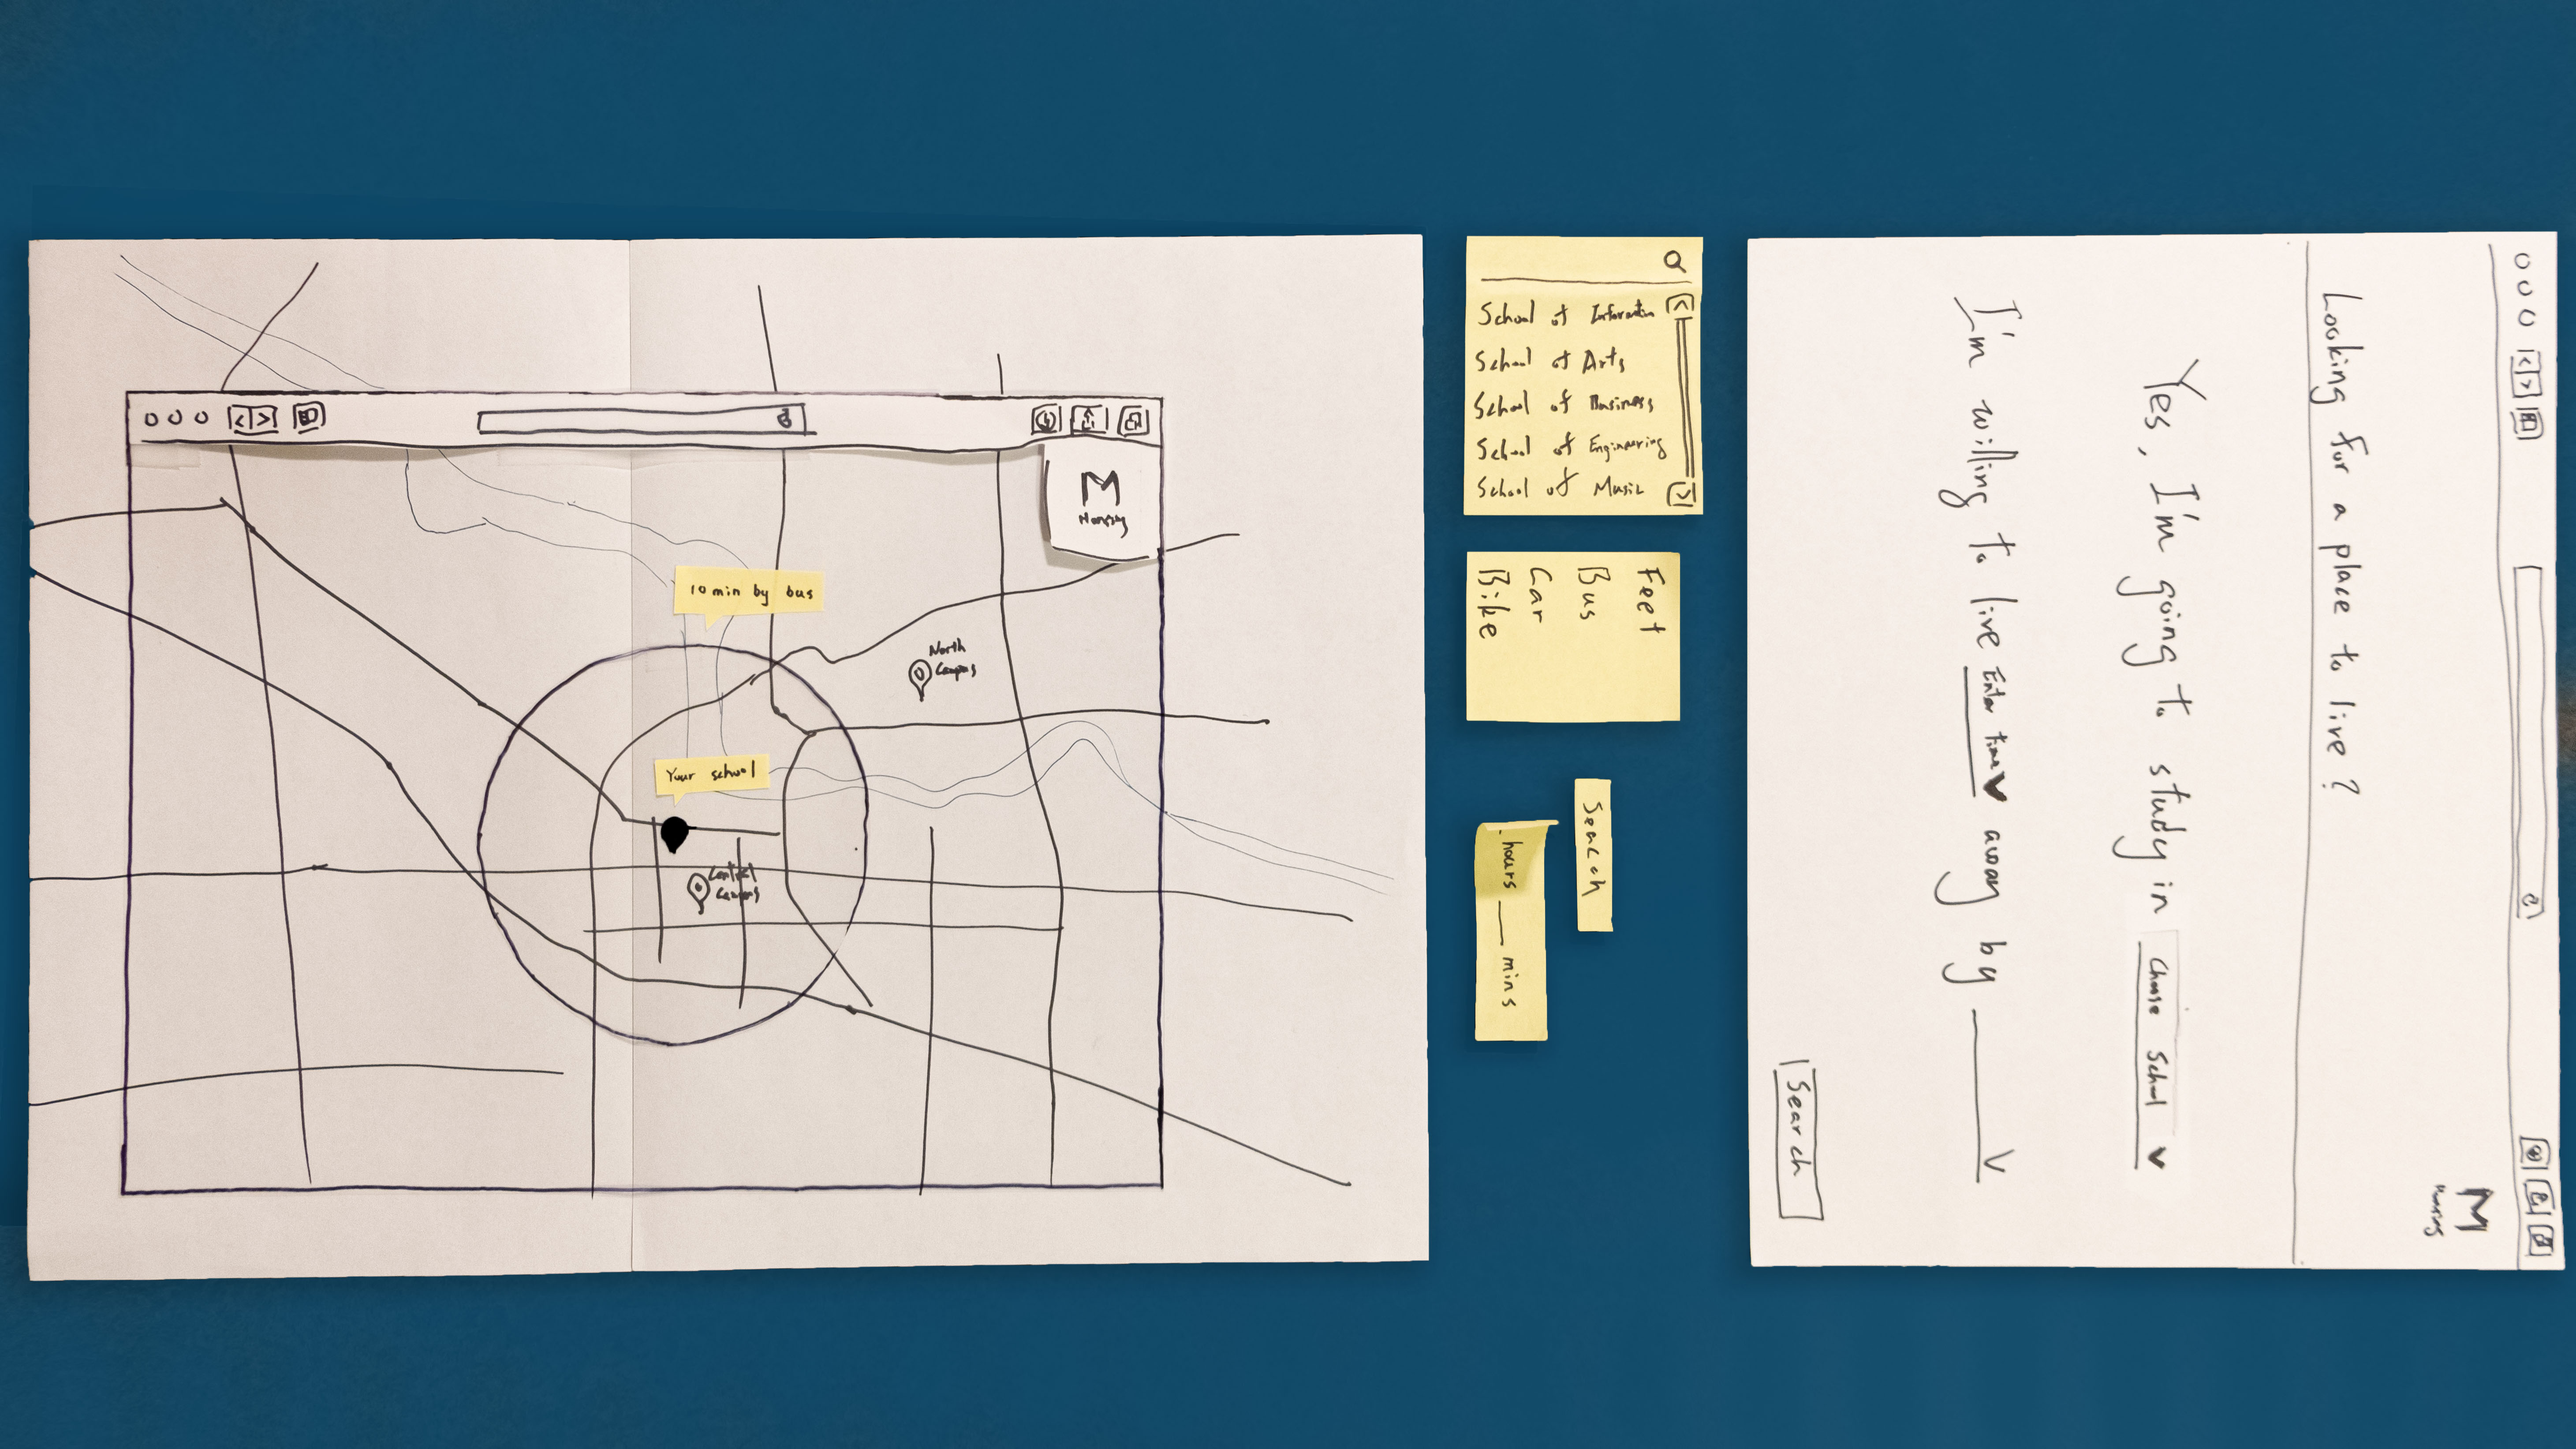 M
10 min by bus
North
Campus
Your school
Central
Campus
School of Information
School of Arts
School of Business
School of Engineering
School of Music
Feet
Bus
Car
Bike
Search
hours mins
M
Housing
Looking for a place to live?
Yes, I'm going to study in Choose School
I'm willing to live Enter time away by
Search